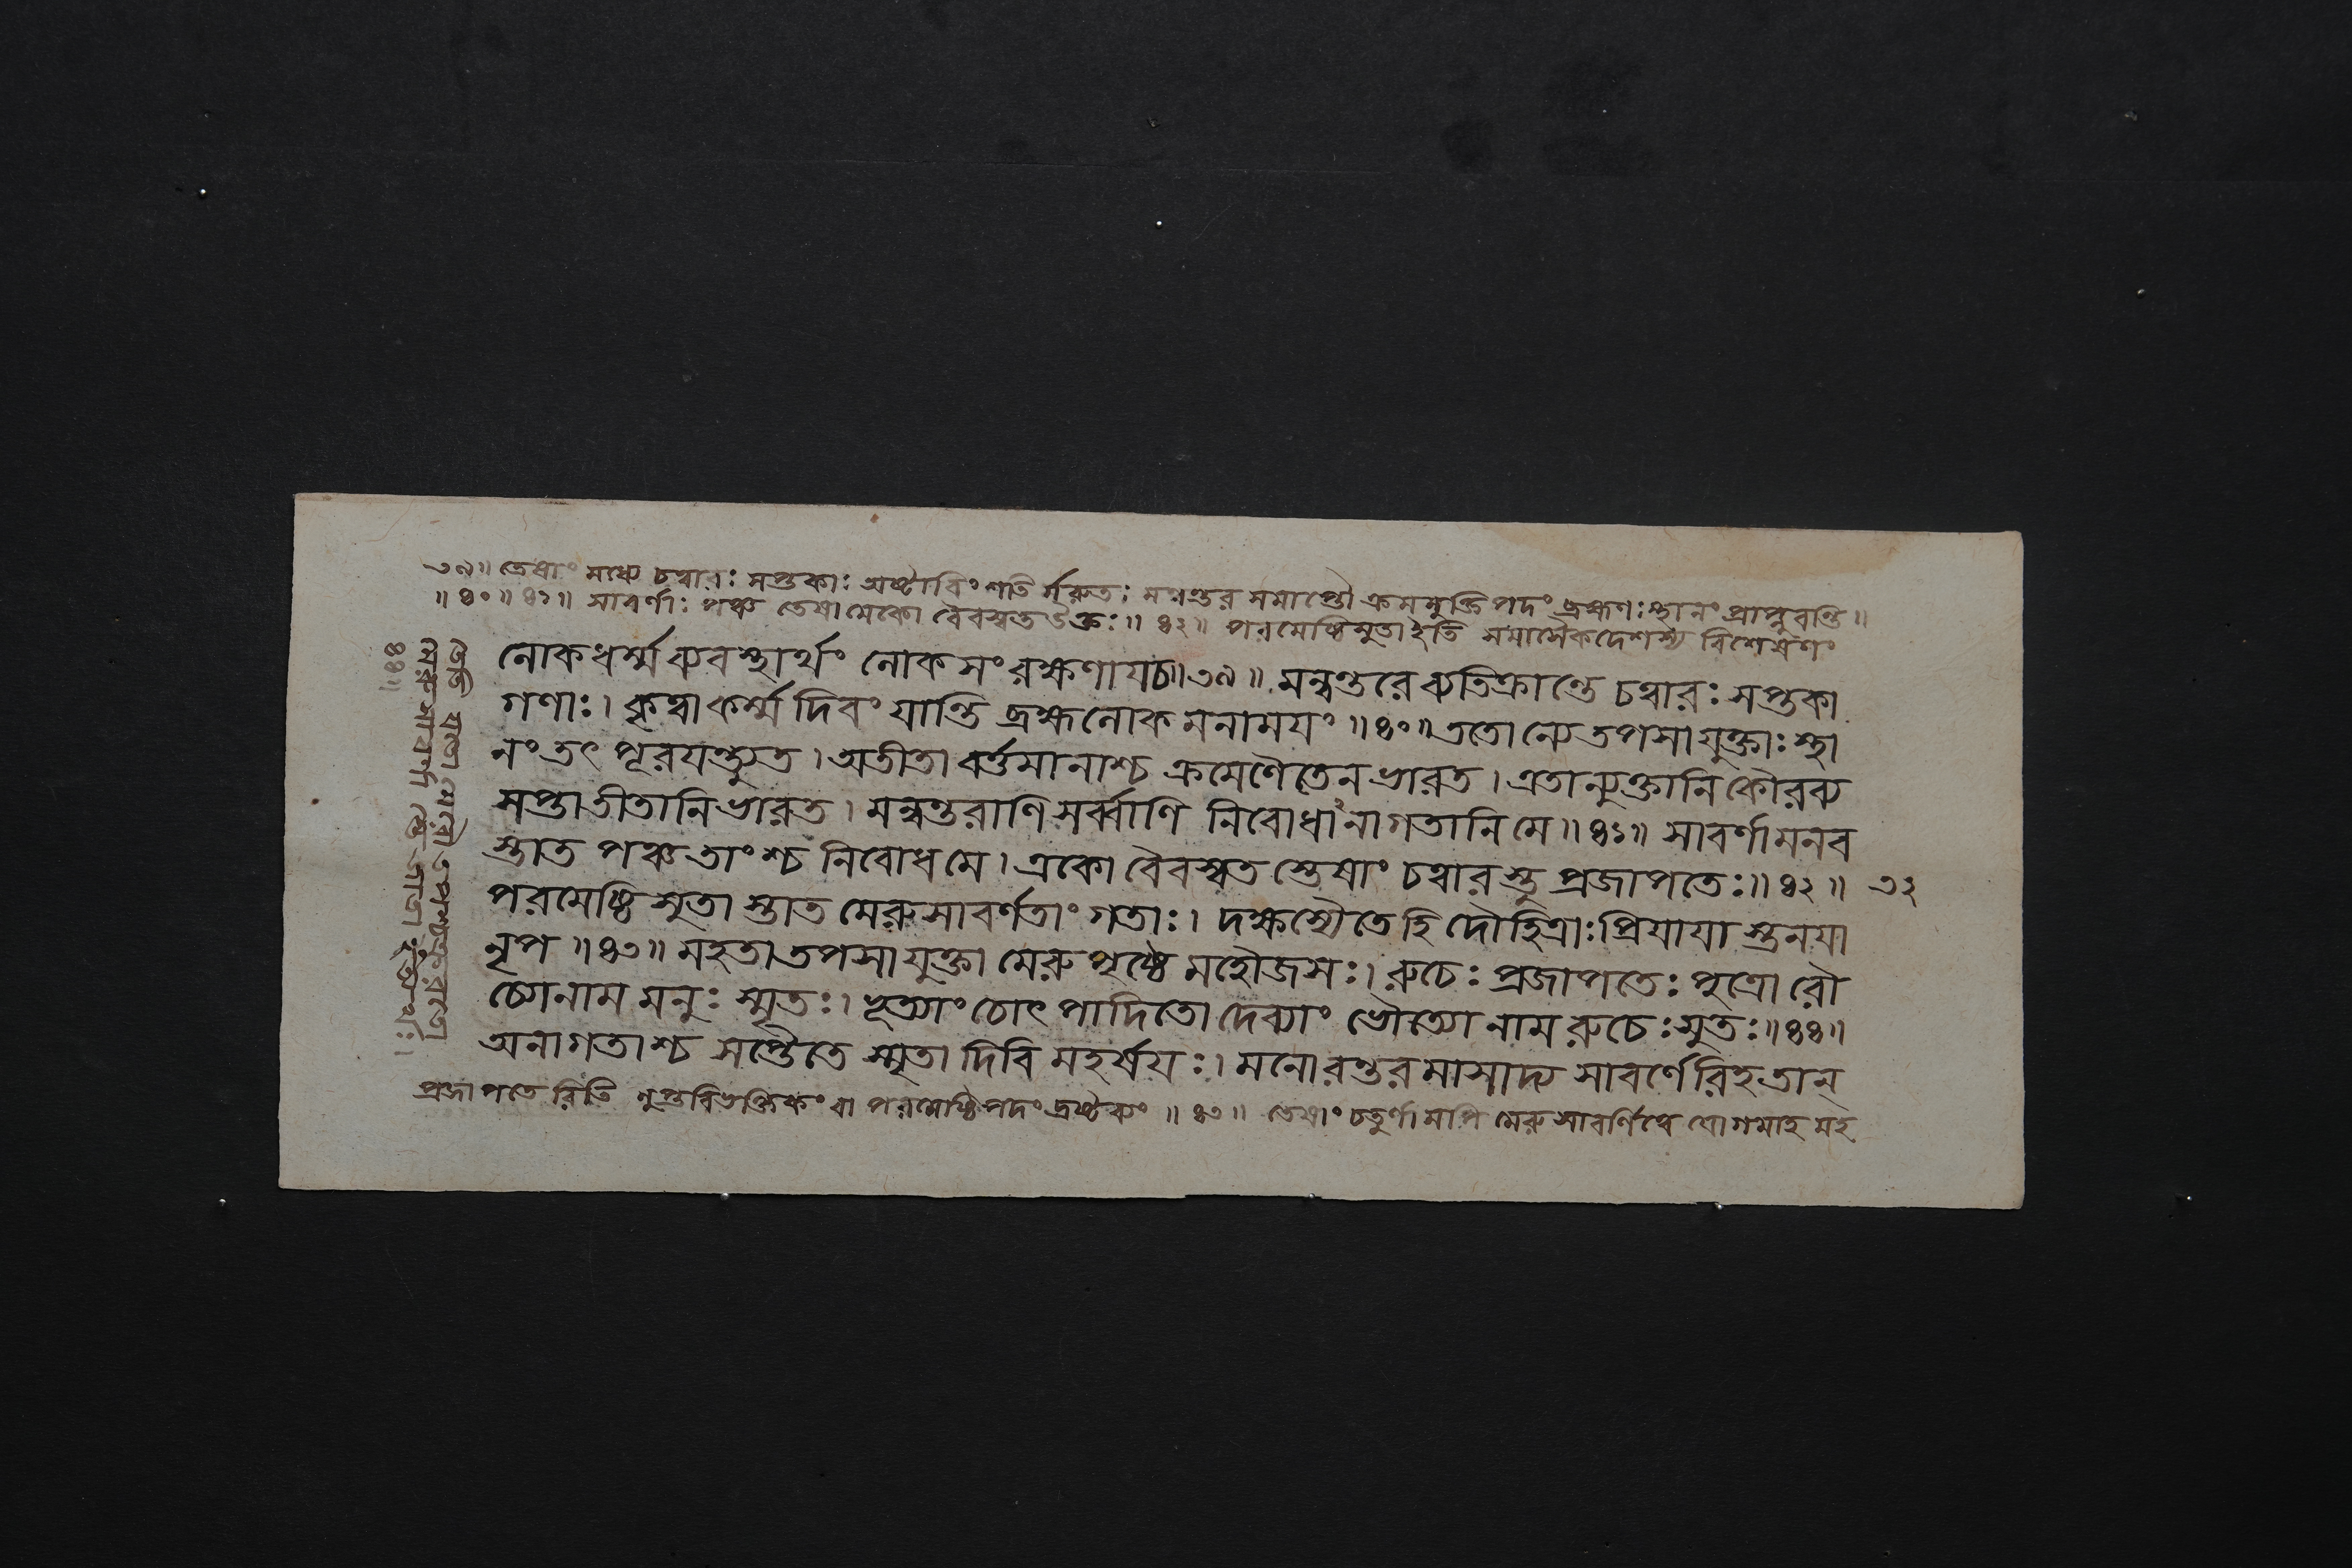 ৩৯॥ তেষাং মধ্যে চত্বারঃ সপ্তকাঃ অষ্টাবিংশতির্মরুতঃ মন্বন্তর সমাপ্তৌ ক্রমমুক্তিপদং ব্রহ্মণঃ স্থানং প্রাপ্নুবন্তি॥
॥৪০॥৪১॥ সাবর্ণাঃ পঞ্চ তেষামেকো বৈবস্বত উক্তঃ॥৪২॥ পরমেষ্ঠিসুতা ইতি সমাসৈকদেশস্য বিশেষণং
লোকধর্ম্মব্যবস্থার্থং লোকসংরক্ষণায চ॥৩৯॥ মন্বন্তরে ব্যতিক্রান্তে চত্বারঃ সপ্তকা
গণাঃ। কৃত্বা কর্ম্ম দিবং যান্তি ব্রহ্মলোকমনাময়ং॥৪০॥ ততোন্যে তপসা যুক্তাঃ স্থা
নং তৎ পূরযন্ত্যুত। অতীতা বর্ত্তমানাশ্চ ক্রমেণৈতেন ভারত। এতান্যুক্তানি কৌরব্য
সপ্তাতীতানি ভারত। মন্বন্তরাণি সর্ব্বাণি নিবোধানাগতানি মে॥৪১॥ সাবর্ণামনব
স্তাত পঞ্চ তাংশ্চ নিবোধ মে। একো বৈবস্বতস্তেষাং চত্বারস্তু প্রজাপতেঃ॥৪২॥ ৩২
পরমেষ্ঠিসুতাস্তাত মেরুসাবর্ণতাং গতাঃ। দক্ষস্যৈতে হি দৌহিত্রাঃ প্রিযাযাস্তনযা
নৃপ॥৪৩॥ মহতা তপসা যুক্তা মেরুপৃষ্ঠে মহৌজসঃ। রুচেঃ প্রজাপতেঃ পুত্রো রৌ
চ্যোনাম মনুঃ স্মৃতঃ। ভূত্যাং চোৎপাদিতো দেব্যাং ভৌত্যো নাম রুচেঃ সুতঃ॥৪৪॥
অনাগতাশ্চ সপ্তৈতে স্মৃতা দিবি মহর্ষযঃ। মনোরন্তরমাসাদ্য সাবর্ণেরিহ তান্
প্রজাপতেরিতি লুপ্তবিভক্তিকং বা পরমেষ্ঠিপদং দ্রষ্টব্যং॥৪৩॥ তেষাং চতুর্ণামপি মেরুসাবর্ণিত্বে যোগমাহ মহ
তেতি যতো মেরৌ তপশ্চক্রুরতো
মেরুসাবর্ণা তে জাতা ইত্যর্থঃ।
৪৪॥